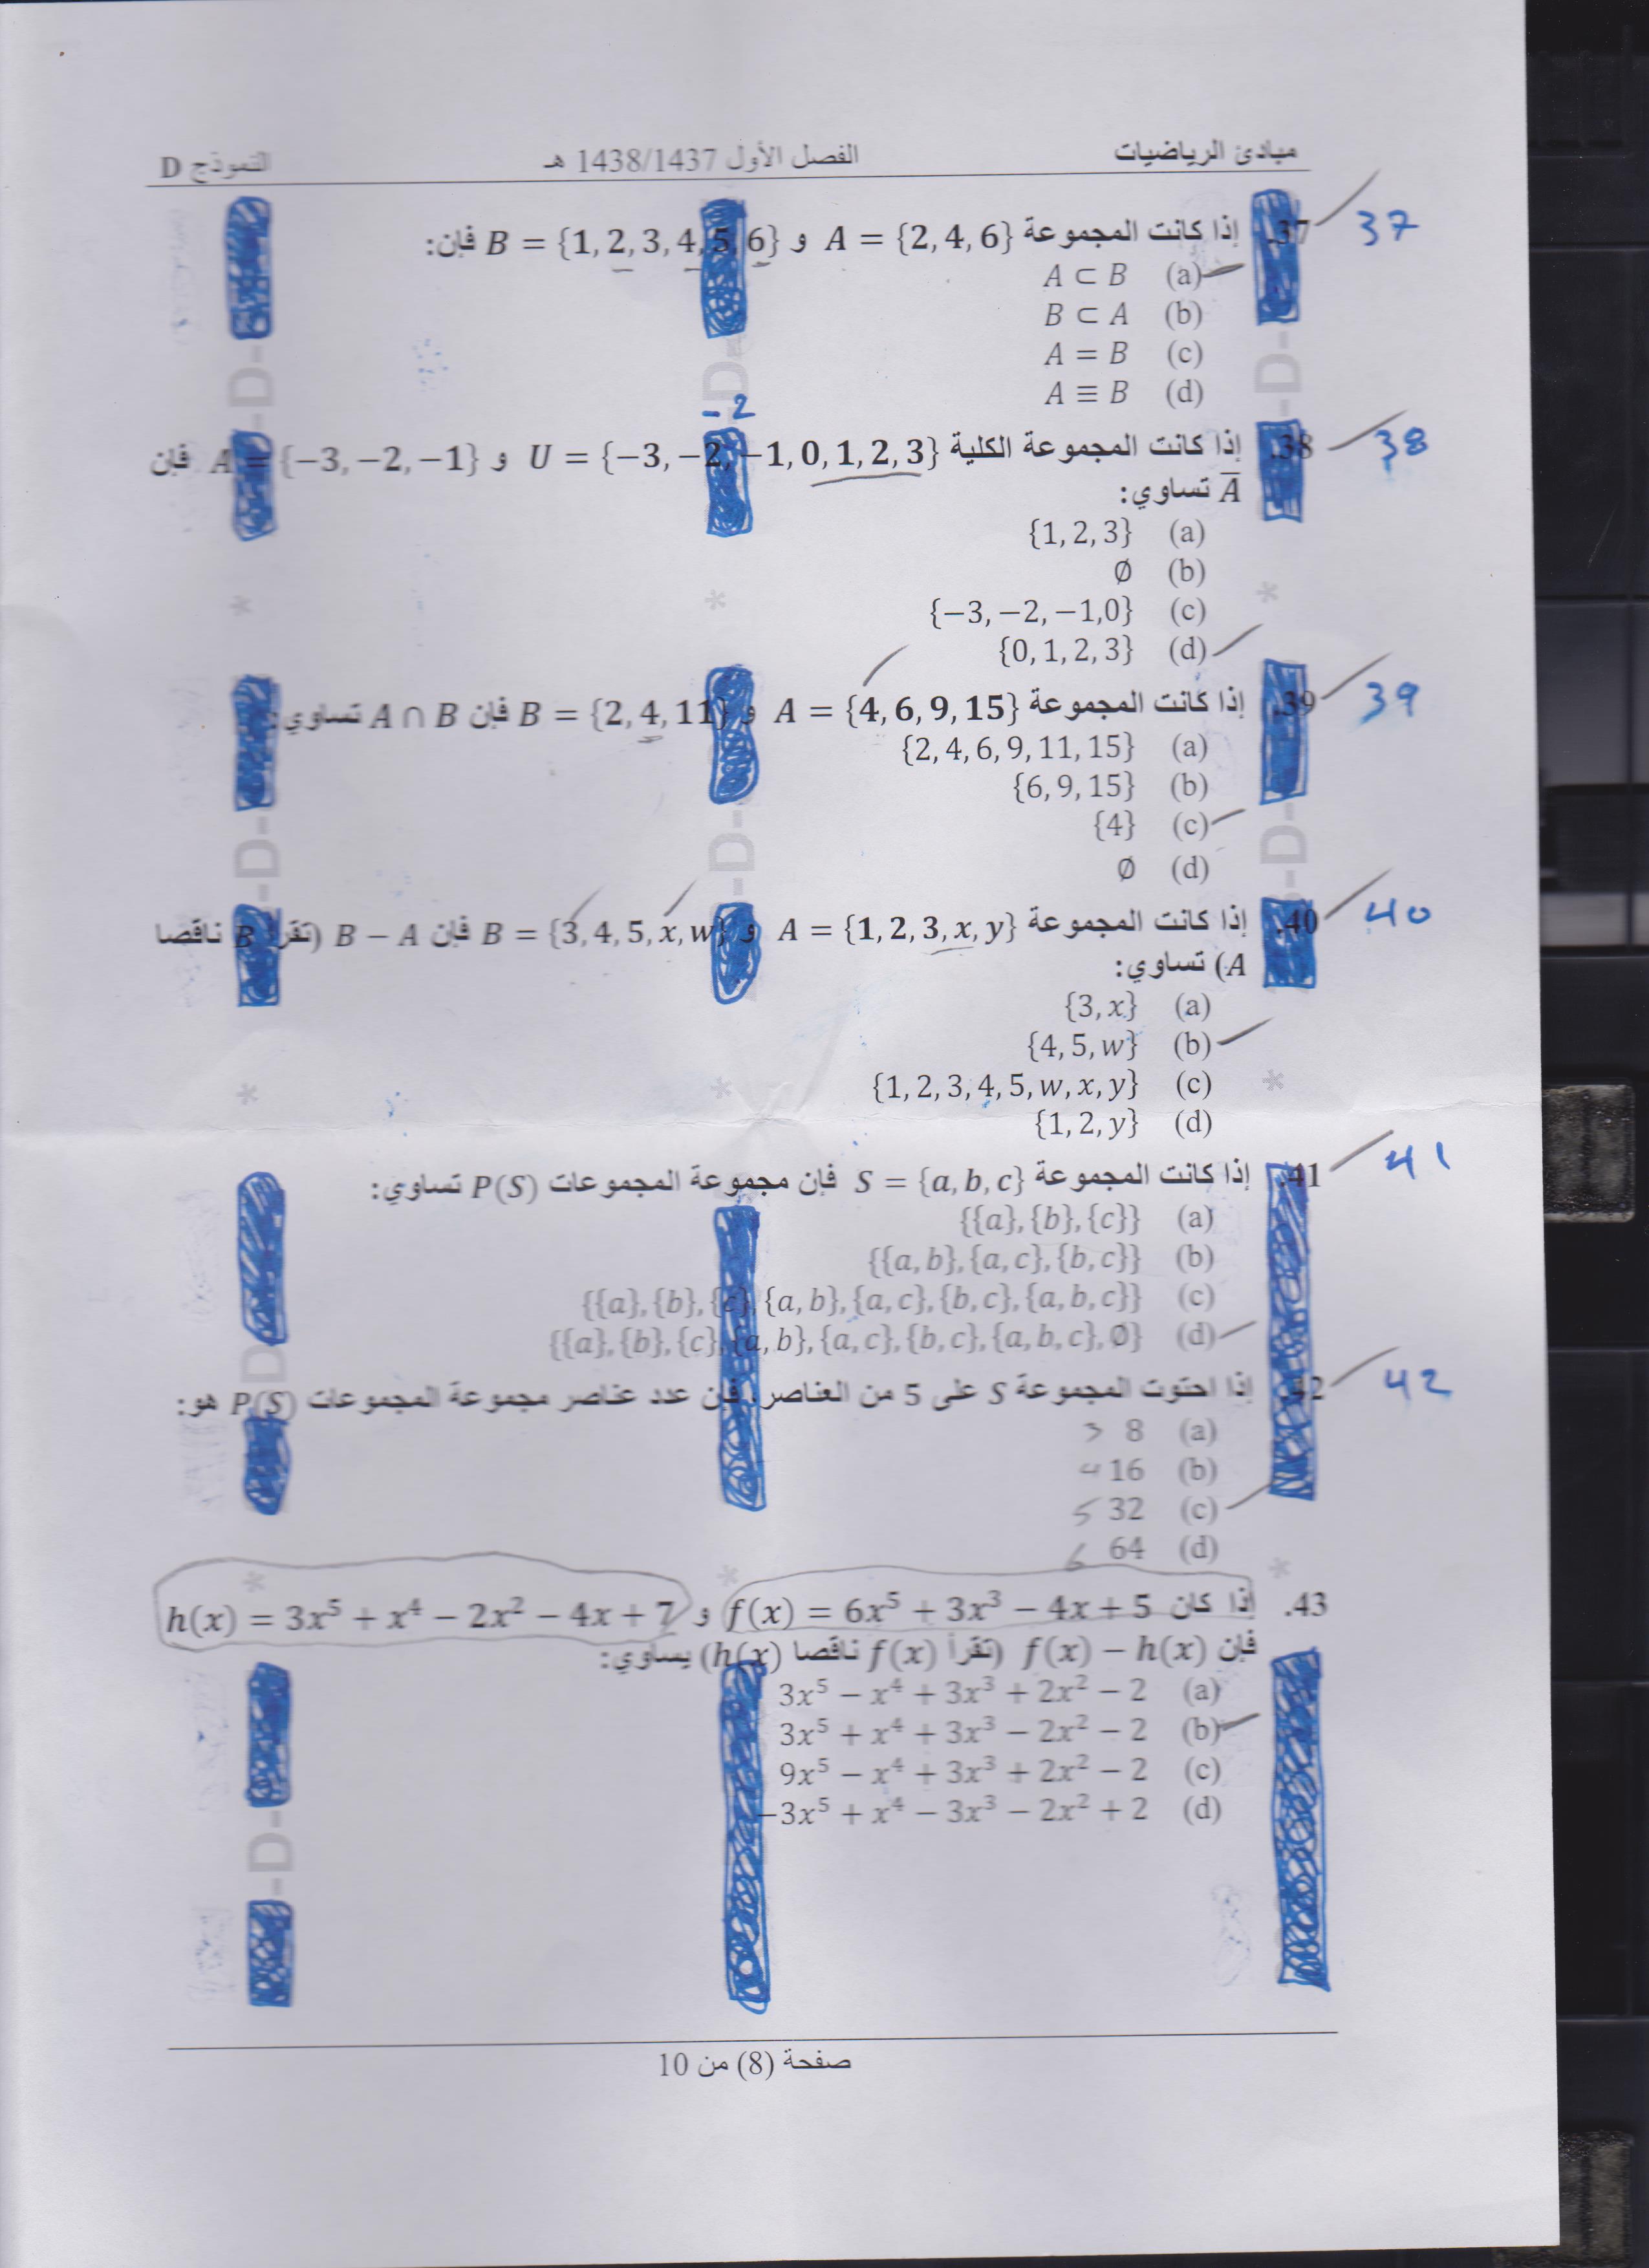 مبادئ الرياضيات الفصل الأول 1438/1437 هـ النموذج D
37. إذا كانت المجموعة A = {2, 4, 6} و B = {1, 2, 3, 4, 5, 6} فإن: 37
(a) A ⊂ B
(b) B ⊂ A
(c) A = B
(d) A ≡ B
-2
38. إذا كانت المجموعة الكلية U = {−3, −2, −1, 0, 1, 2, 3} و A = {−3, −2, −1} فإن 38
A̅ تساوي:
(a) {1, 2, 3}
(b) ∅
(c) {−3, −2, −1,0}
(d) {0, 1, 2, 3}
39. إذا كانت المجموعة A = {4, 6, 9, 15} و B = {2, 4, 11} فإن A ∩ B تساوي: 39
(a) {2, 4, 6, 9, 11, 15}
(b) {6, 9, 15}
(c) {4}
(d) ∅
40. إذا كانت المجموعة A = {1, 2, 3, x, y} و B = {3, 4, 5, x, w} فإن B − A (تقرأ B ناقصا 40
A) تساوي:
(a) {3, x}
(b) {4, 5, w}
(c) {1, 2, 3, 4, 5, w, x, y}
(d) {1, 2, y}
41. إذا كانت المجموعة S = {a, b, c} فإن مجموعة المجموعات P(S) تساوي: 41
(a) {{a}, {b}, {c}}
(b) {{a, b}, {a, c}, {b, c}}
(c) {{a}, {b}, {c}, {a, b}, {a, c}, {b, c}, {a, b, c}}
(d) {{a}, {b}, {c}, {a, b}, {a, c}, {b, c}, {a, b, c}, ∅}
42. إذا احتوت المجموعة S على 5 من العناصر، فإن عدد عناصر مجموعة المجموعات P(S) هو: 42
(a) 8 3
(b) 16 4
(c) 32 5
(d) 64 6
43. إذا كان f(x) = 6x⁵ + 3x³ − 4x + 5 و h(x) = 3x⁵ + x⁴ − 2x² − 4x + 7
فإن f(x) − h(x) (تقرأ f(x) ناقصا h(x)) يساوي:
(a) 3x⁵ − x⁴ + 3x³ + 2x² − 2
(b) 3x⁵ + x⁴ + 3x³ − 2x² − 2
(c) 9x⁵ − x⁴ + 3x³ + 2x² − 2
(d) −3x⁵ + x⁴ − 3x³ − 2x² + 2
صفحة (8) من 10